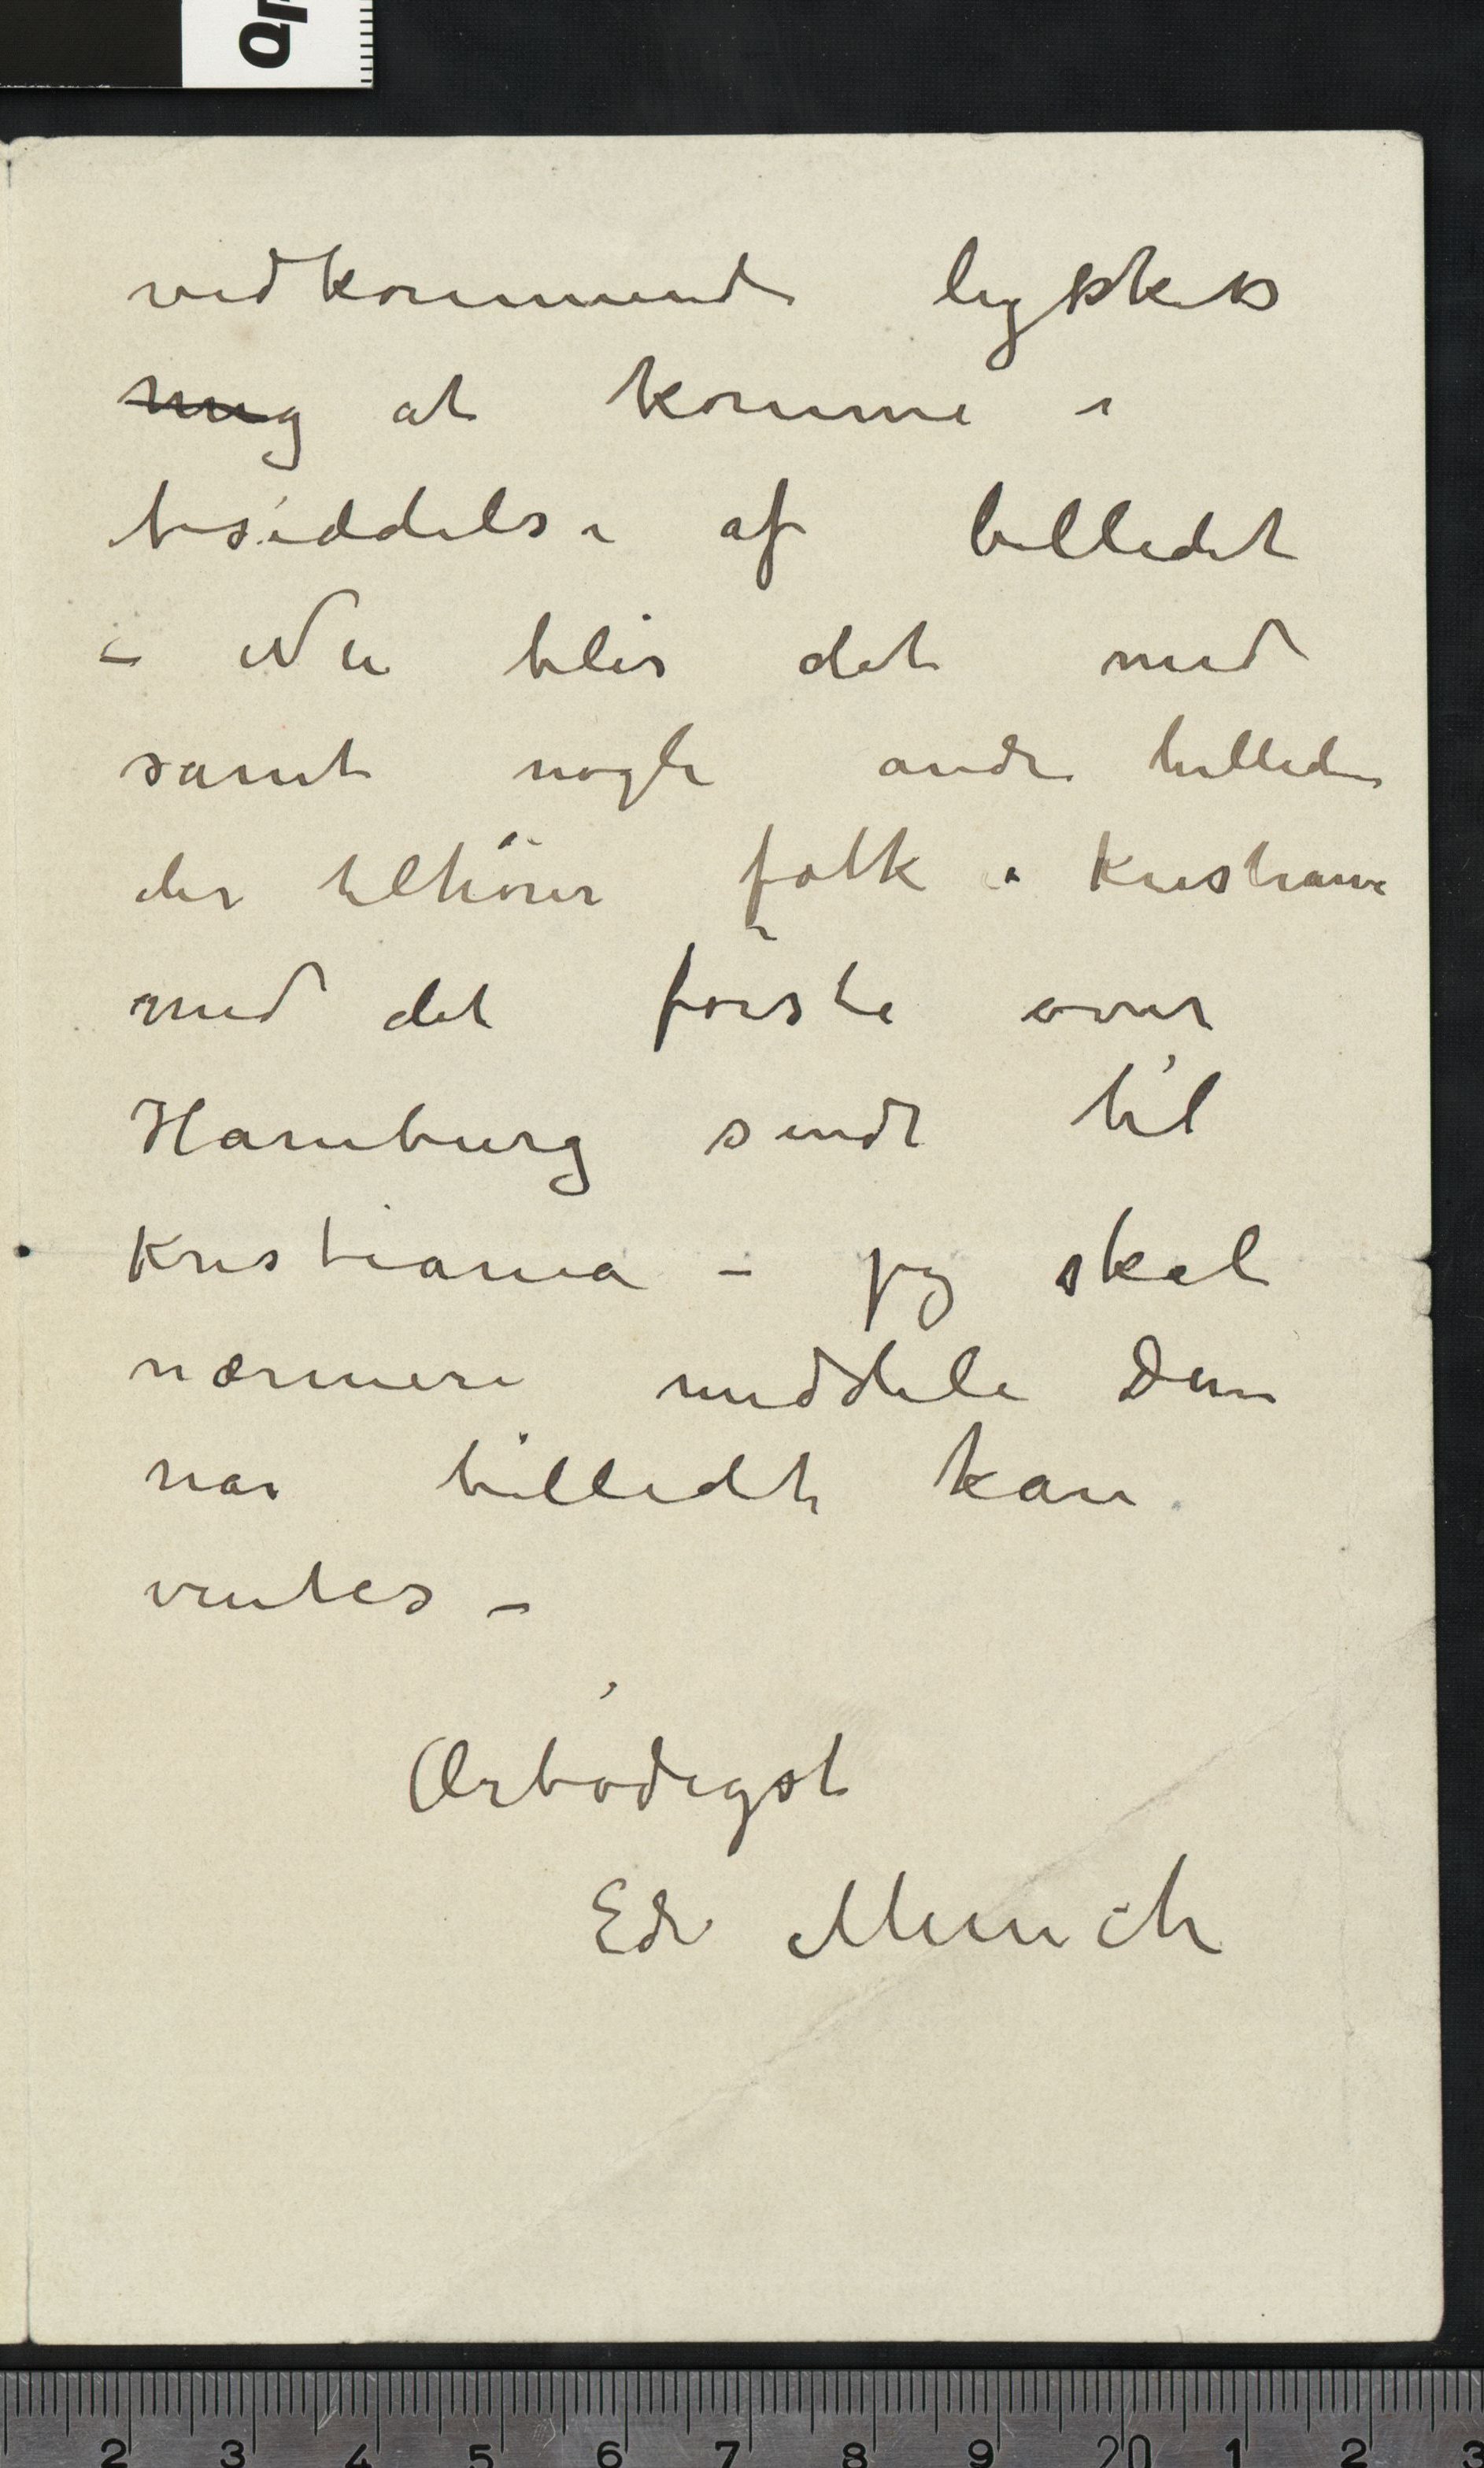 vedkommende lykkes
mig at komme i
besiddelse af billedet
– Nu blir det med
samt nogle andre billeder
der tilhörer folk i Kristiania
med det förste over
Hamburg sendt til
Kristiania – jeg skal
nærmere meddele Dem
når billedet kan
ventes –
Ærbödigst
Edv Munch
2 3 4 5 6 7 8 9 20 1 2 3